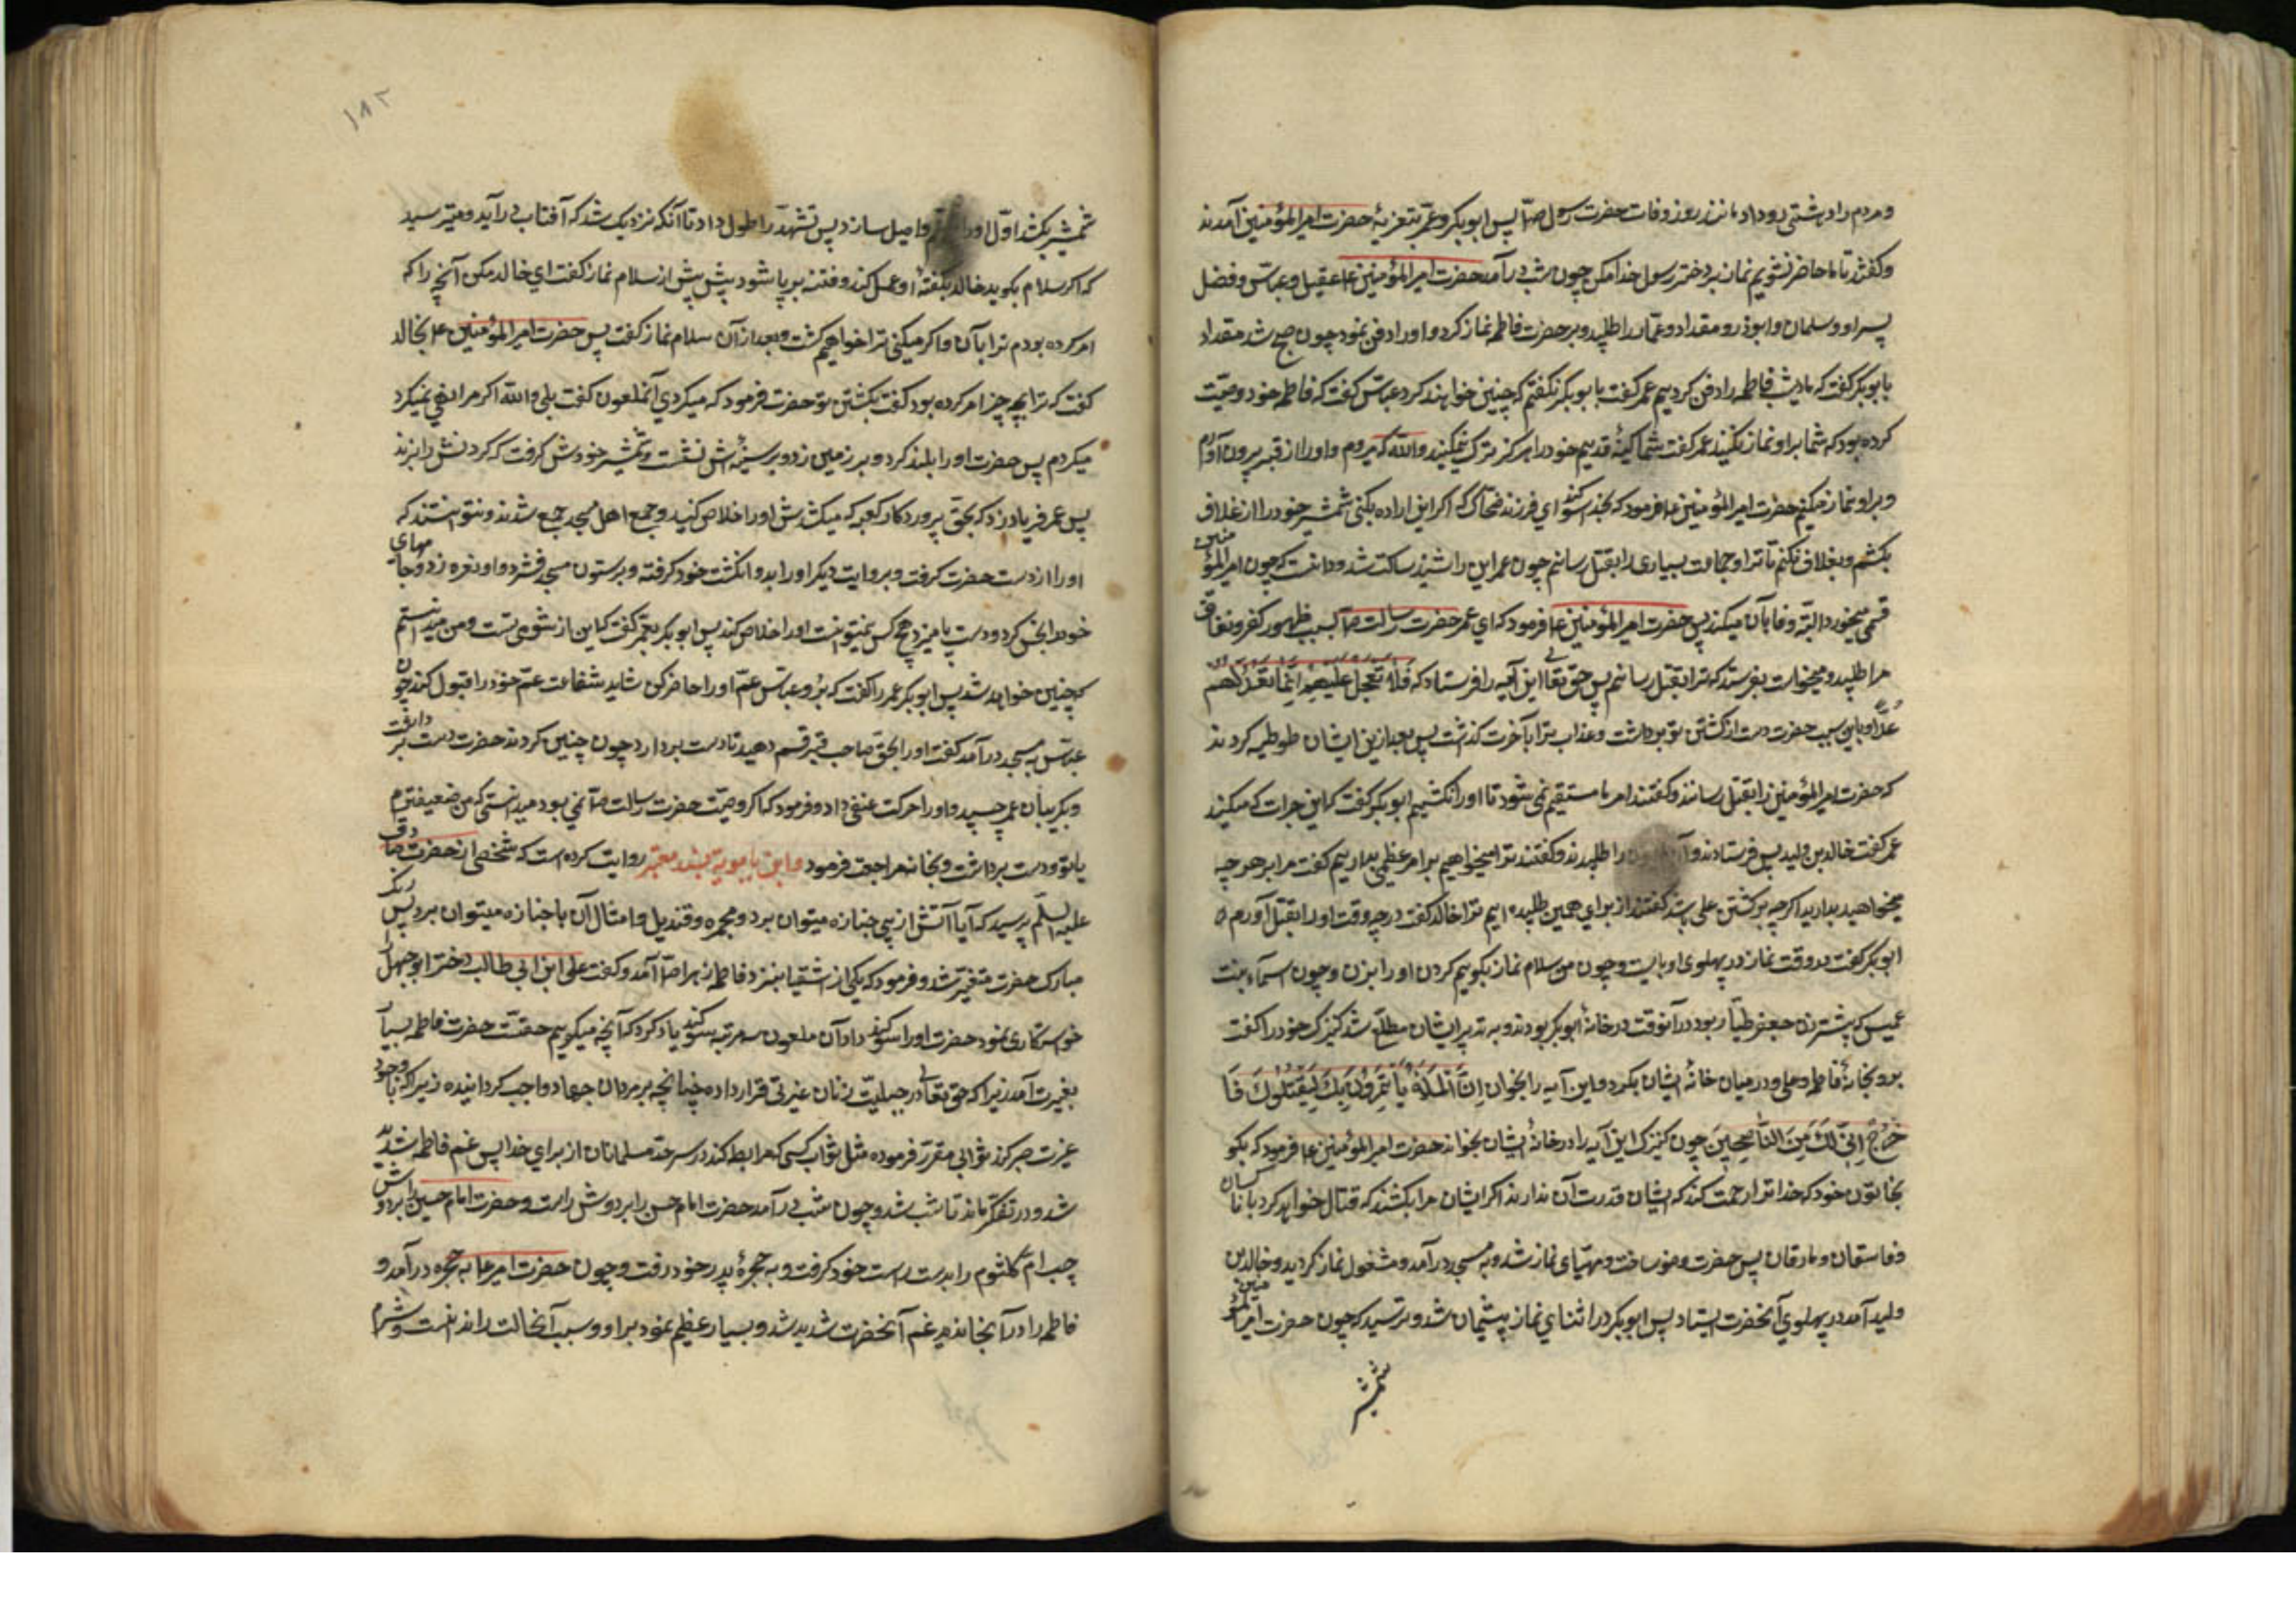 و مردم را دهشتی رو داد مانند روز وفات حضرت رسول ص‍ پس ابوبکر و عمر بتعزیۀ حضرت امیرالمؤمنین آمدند
و کفتند تا ما حاضر نشویم نماز بر دختر رسول خدا مکن چون شب درآمد حضرت امیرالمؤمنین ع‍ عقیل و عباس و فضل
پسر او و سلمان و ابوذر و مقداد و عمار را طلبید و بر حضرت فاطمه نماز کرد و او را دفن نمود چون صبح شد مقداد
بابوبکر کفت که ما دیشب فاطمه را دفن کردیم عمر کفت بابوبکر نکفتم که چنین خواهند کرد عباس کفت که فاطمه خود وصیت
کرده بود که شما بر او نماز نکنید عمر کفت شما کینۀ قدیم خود را هرکز ترک نمیکنید والله که میروم و او را از قبر بیرون آورم
و بر او نماز میکنم حضرت امیرالمؤمنین ع‍ فرمود که بخدا سوکند ای فرزند ضحاک که اکر این اراده بکنی شمشیر خود را از غلاف
بکشم و بغلاف نکنم تا ترا و جماعت بسیاری را بقتل رسانم چون عمر این را شنید ساکت شد و دانست که چون امیرالمؤمنین
قسمی میخورد البته وفا بآن میکند پس حضرت امیرالمؤمنین ع‍ فرمود که ای عمر حضرت رسالت ص‍ بسبب ظهور کفر و نفاق
مرا طلبید و میخواست بفرستد که ترا بقتل رسانم پس حق تعالی این آیه را فرستاد که فَلَا تَعْجَلْ عَلَيْهِمْ اِنَّمَا نَعُدُّ لَهُمْ
عَدًّا و باین سبب حضرت دست از کشتن تو برداشت و عذاب ترا بآخرت کذاشت پس بعد از این ایشان طوطیه کردند
که حضرت امیرالمؤمنین را بقتل رسانند و کفتند امر ما مستقیم نمی شود تا او را نکشیم ابوبکر کفت که این جرات که میکند
عمر کفت خالد بن ولید پس فرستادند و را طلبیدند و کفتند ترا میخواهیم بر امر عظیمی بداریم کفت مرا بر هر چه
میخواهید بدارید اکر چه بر کشتن علی باشد کفتند از برای همین طلبیده ایم ترا خالد کفت در چه وقت او را بقتل آورم
ابوبکر کفت در وقت نماز در پهلوی او بایست و چون من سلام نماز بکویم کردن او را بزن و چون اسماء بنت
عمیس که پیشتر زن جعفر طیار بود در آنوقت در خانۀ ابوبکر بود و به تدبیر ایشان مطلع شد کنیزک خود را کفت
برو بخانۀ فاطمه و علی و در میان خانۀ ایشان بکرد و این آیه را بخوان اِنَّ الْمَلَأَ يَأْتَمِرُونَ بِكَ لِيَقْتُلُوكَ فَا
خْرُجْ اِنِّي لَكَ مِنَ النَّاصِحِينَ چون کنیزک این آیه را در خانۀ ایشان بخواند حضرت امیرالمؤمنین ع‍ فرمود که بکو
بخاتون خود که خدا ترا رحمت کند که ایشان قدرت آن ندارند اکر ایشان مرا بکشند که قتال خواهد کرد با ناکسان
و فاسقان و مارقان پس حضرت وضو ساخت و مهیای نماز شد و به مسجد درآمد و مشغول نماز کردید و خالد بن
ولید آمد در پهلوی آنحضرت ایستاد پس ابوبکر در اثنای نماز پشیمان شد و ترسید که چون حضرت امیرالمؤمنین
شمشیر
۱۸۲
شمشیر بکشد اول او را واصل سازد پس تشهد را طول داد تا آنکه نزدیک شد که آفتاب درآید و میترسید
که اکر سلام بکوید خالد بکفتۀ او عمل کند و فتنه برپا شود پیش از سلام نماز کفت ای خالد مکن آنچه را که
امر کرده بودم ترا بآن و اکر میکنی ترا خواهیم کشت و بعد از آن سلام نماز کفت پس حضرت امیرالمؤمنین ع‍ بخالد
کفت که ترا بچه چیز امر کرده بود کفت بکشتن تو حضرت فرمود که میکردی آنملعون کفت بلی والله اکر مرا نهی نمیکرد
میکردم پس حضرت او را بلند کرد و بر زمین زد و بر سینه اش نشست و شمشیر خودش کرفت که کردنش را بزند
پس عمر فریاد زد که بحق پروردکار کعبه که میکشدش او را خلاص کنید و جمع اهل مسجد جمع شدند و نتوانستند که
او را از دست حضرت کرفت و بروایت دیکر او را بدو انکشت خود کرفته و بر ستون مسجد فشرد و او نعره زد و جامهای
خود را نجس کرد و دست پا میزد و هیچ کس نمیتوانست او را خلاص کند پس ابوبکر بعمر کفت که این از شومی تست و من میدانستم
که چنین خواهد شد پس ابوبکر عمر را کفت که برو عباس عم او را حاضر کن شاید شفاعت عم خود را قبول کند چون
عباس به مسجد درآمد کفت او را بحق صاحب قبر قسم دهید تا دست بردارد چون چنین کردند حضرت دست برداشت
و بکریبان عمر چسپید و او را حرکت عنفی داد و فرمود که اکر وصیت حضرت رسالت ص‍ نمی بود میدانستی که من ضعیفترم
یا تو و دست برداشت و بخانه مراجعت فرمود و ابن بابویه بسند معتبر روایت کرده است که شخصی از حضرت صادق
علیه السلم پرسید که آیا آتش از پی جنازه میتوان برد و مجمره و قندیل و امثال آن با جنازه میتوان برد پس رنک
مبارک حضرت متغیر شد و فرمود که یکی از اشقیا بنزد فاطمه زهرا ص‍ آمد و کفت علی ابن ابی طالب دختر ابوجهل را
خواستکاری نمود حضرت او را سوکند داد آن ملعون سه مرتبه سوکند یاد کرد که آنچه میکویم حقست حضرت فاطمه بسیار
بغیرت آمد زیرا که حق تعالی در جبلیت زنان غیرتی قرار داده چنانچه بر مردان جهاد واجب کردانیده زیرا که با وجود
غیرت صبر کند ثوابی مقرر فرموده مثل ثواب کسی که مرابطه کند در سرحد مسلمانان از برای خدا پس غم فاطمه شدید
شد و در تفکر ماند تا شب شد و چون شب درآمد حضرت امام حسن را بر دوش راست و حضرت امام حسین را بر دوش
چپ ام کلثوم را بدست راست خود کرفت و به حجرۀ پدر خود رفت و چون حضرت امیر ع‍ به حجره درآمد و
فاطمه را در آنجا ندید غم آنحضرت شدید شد و بسیار عظیم نمود بر او و سبب آنحالت را ندانست و شرم